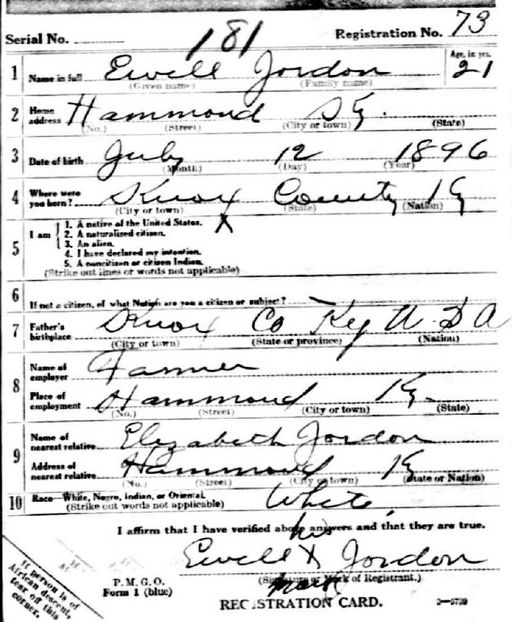 Serial No. 181 Registration No. 73
1 Name in full Ewell Jordon Age, in yrs. 21
(Given name) (Family name)
2 Home address Hammond Ky.
(No.) (Street) (City or town) (State)
3 Date of birth July 12 1896
(Month) (Day) (Year)
4 Where were you born? Knox County Ky
(City or town) (State) (Nation)
5 I am
1. A native of the United States. X
2. A naturalized citizen.
3. An alien.
4. I have declared my intention.
5. A noncitizen or citizen Indian.
(Strike out lines or words not applicable)
6 If not a citizen, of what Nation are you a citizen or subject?
7 Father's birthplace Knox Co Ky U S A
(City or town) (State or province) (Nation)
8 Name of employer Farmer
Place of employment Hammond Ky
(No.) (Street) (City or town) (State)
9 Name of nearest relative Elizabeth Jordon
Address of nearest relative Hammond Ky
(No.) (Street) (City or town) (State or Nation)
10 Race—White, Negro, Indian, or Oriental. White
(Strike out words not applicable)
I affirm that I have verified above answers and that they are true.
his
Ewell X Jordon
(Signature or Mark of Registrant.)
mark
P. M. G. O.
Form 1 (blue)
REGISTRATION CARD.
3—5739
If person is of
African descent,
tear off this
corner.